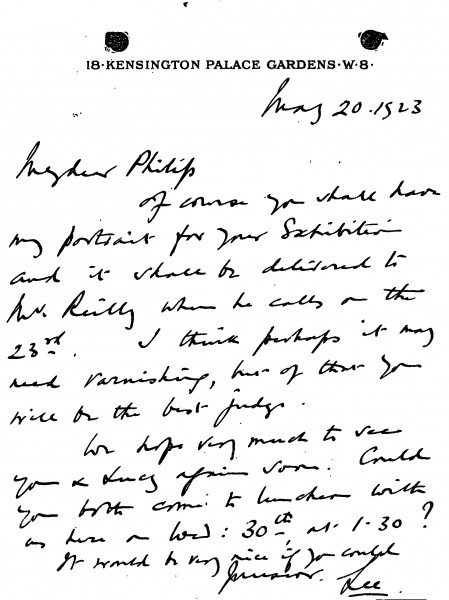 18·KENSINGTON PALACE GARDENS·W·8·
May 20. 1923
My dear Philip
Of course you shall have
my portrait for your Exhibition
and it shall be delivered to
Mr. Reilly when he calls on the
23rd. I think perhaps it may
need varnishing, but of that you
will be the best judge.
We hope very much to see
you & Lucy again soon. Could
you both come to luncheon with
us here on Wed: 30th, at 1-30?
It would be very nice if you could
Yours ever. Lee.